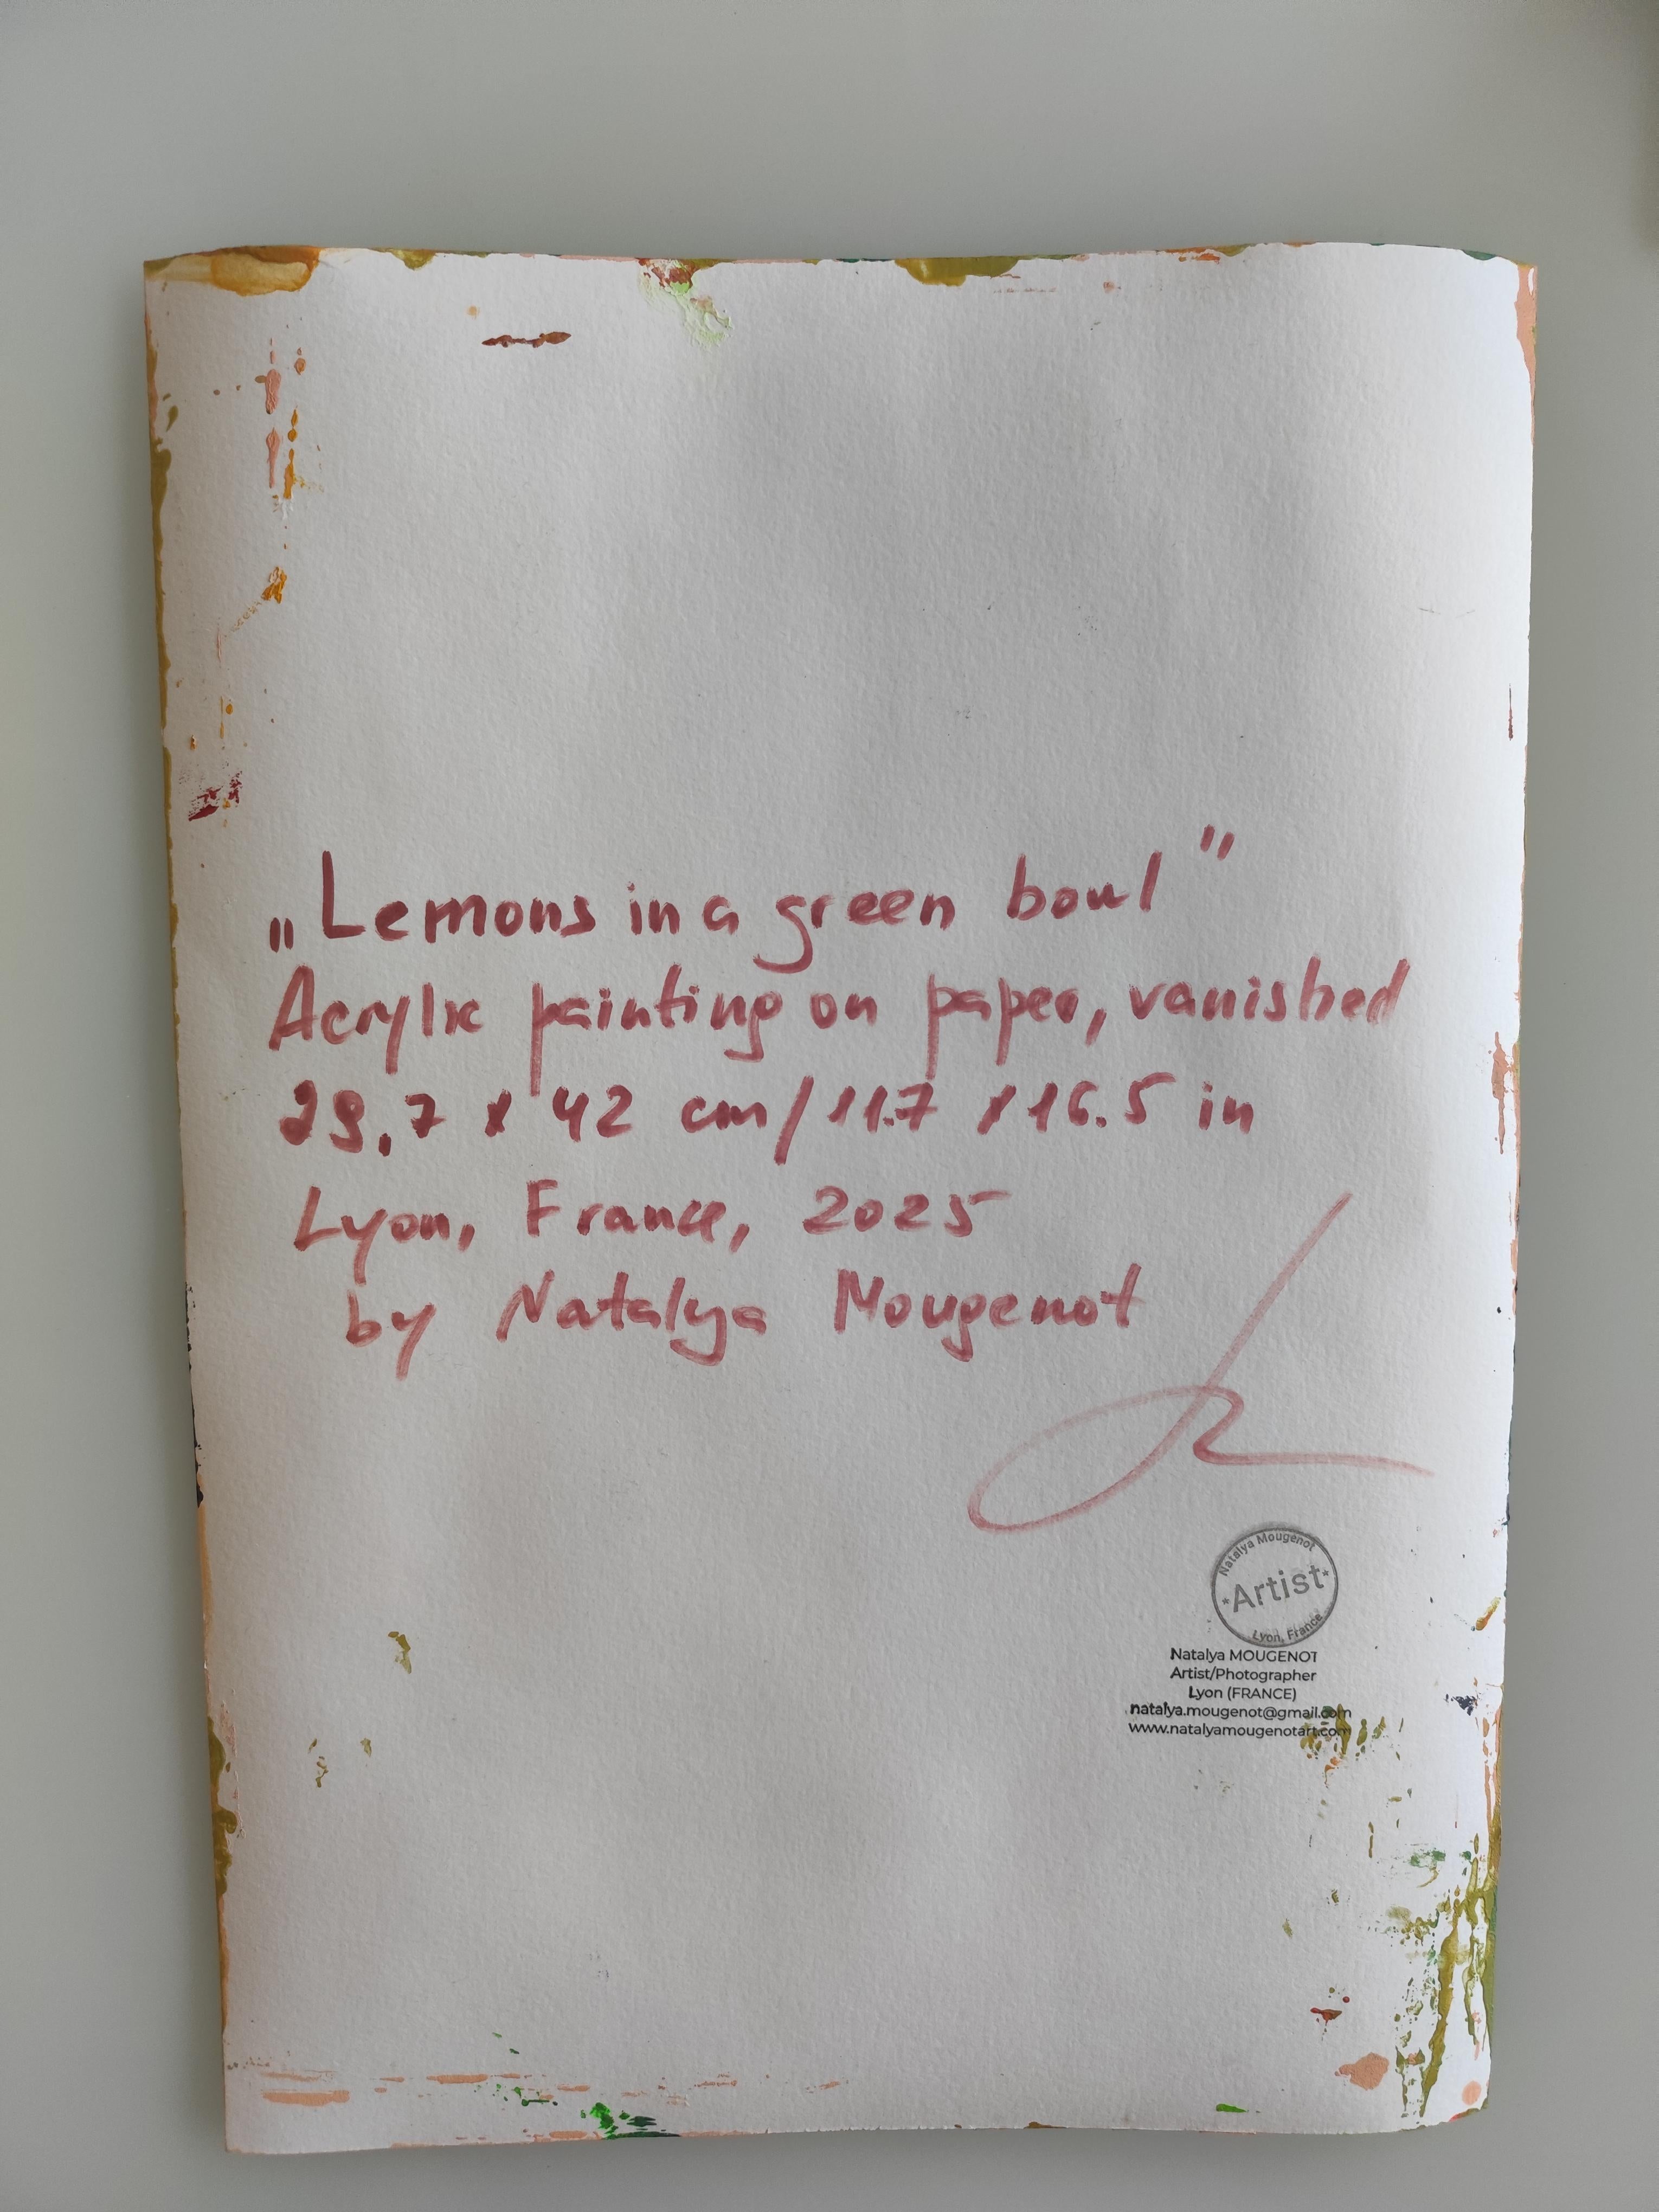 „Lemons in a green bowl"
Acrylic painting on paper, vanished
29,7 x 42 cm/11.7 x 16.5 in
Lyon, France, 2025
by Natalya Mougenot
Natalya Mougenot
*Artist*
Lyon, France
Natalya MOUGENOT
Artist/Photographer
Lyon (FRANCE)
natalya.mougenot@gmail.com
www.natalyamougenotart.com